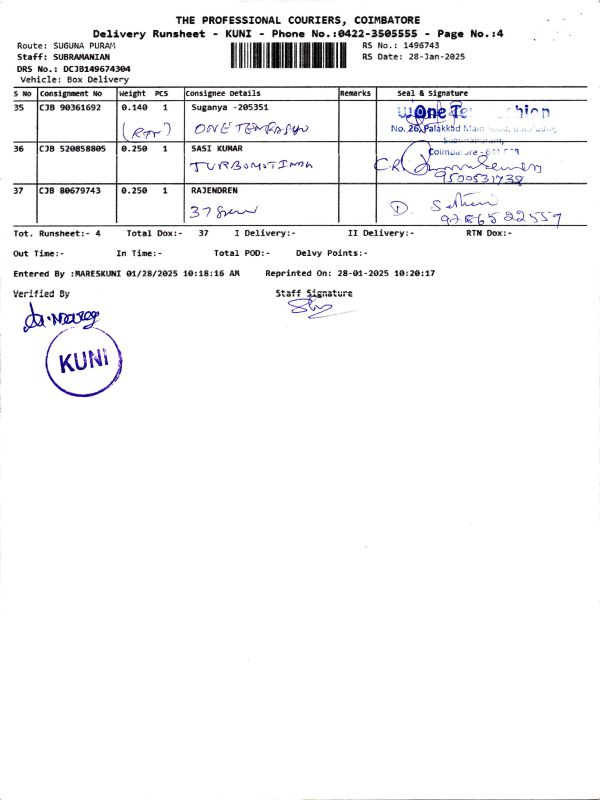 THE PROFESSIONAL COURIERS, COIMBATORE
Delivery Runsheet - KUNI - Phone No.:0422-3505555 - Page No.:4
Route: SUGUNA PURAM
RS No.: 1496743
Staff: SUBRAMANIAN
RS Date: 28-Jan-2025
DRS No.: DCJB149674304
Vehicle: Box Delivery
S No Consignment No Weight PCS Consignee Details Remarks Seal & Signature
35 CJB 90361692 0.140 1 Suganya -205351
One Te
(RTY) ONE TEN
No. 26, Palakkad Main Road,
36 CJB 520858805 0.250 1 SASI KUMAR
Coimbatore - 641 008
TURBOMOTI
9500531738
37 CJB 80679743 0.250 1 RAJENDREN
37 D.
9786522557
Tot. Runsheet:- 4 Total Dox:- 37 I Delivery:- II Delivery:- RTN Dox:-
Out Time:- In Time:- Total POD:- Delvy Points:-
Entered By :MARESKUNI 01/28/2025 10:18:16 AM Reprinted On: 28-01-2025 10:20:17
Verified By Staff Signature
KUNI